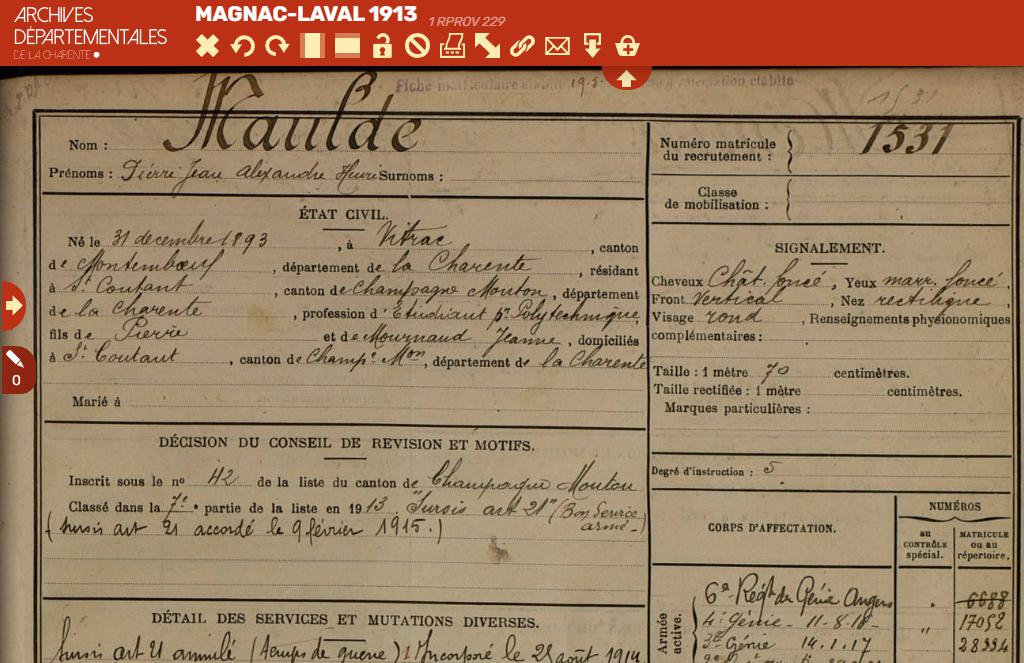 ARCHIVES
DÉPARTEMENTALES
DE LA CHARENTE
MAGNAC-LAVAL 1913 1 RPROV 229
0
Fiche matriculaire établie
1531
Nom : Maulde
Prénoms : Pierre Jean Alexandre Henri Surnoms :
Numéro matricule
du recrutement : 1531
Classe
de mobilisation :
ÉTAT CIVIL.
Né le 31 decembre 1893, à Vitrac, canton
de Montembœuf, département de la Charente, résidant
à St Coutant, canton de Champagne Mouton, département
de la Charente, profession d'Etudiant pr Polytechnique,
fils de Pierre et de Mournaud Jeanne, domiciliés
à St Coutant, canton de Champe Mon, département de la Charente
Marié à
SIGNALEMENT.
Cheveux Chât. foncé, Yeux marr. foncé.
Front Vertical, Nez rectiligne,
Visage rond, Renseignements physionomiques
complémentaires :
Taille : 1 mètre 70 centimètres.
Taille rectifiée : 1 mètre centimètres.
Marques particulières :
Degré d'instruction : 5
DÉCISION DU CONSEIL DE REVISION ET MOTIFS.
Inscrit sous le no 42 de la liste du canton de Champagne Mouton
Classé dans la 7e partie de la liste en 1913. "Sursis art 21" (Bon Service
armé-)
(sursis art 21 accordé le 9 février 1915.)
CORPS D'AFFECTATION.
NUMÉROS
au
CONTRÔLE
spécial.
MATRICULE
ou au
répertoire.
Armée
active.
6e Régt du Génie Angers " 6688
4e Génie - 11-8-18- " 17052
3e Génie 14.1.17 28334
DÉTAIL DES SERVICES ET MUTATIONS DIVERSES.
Sursis art 21 annulé (temps de guerre) Incorporé le 28 août 1914